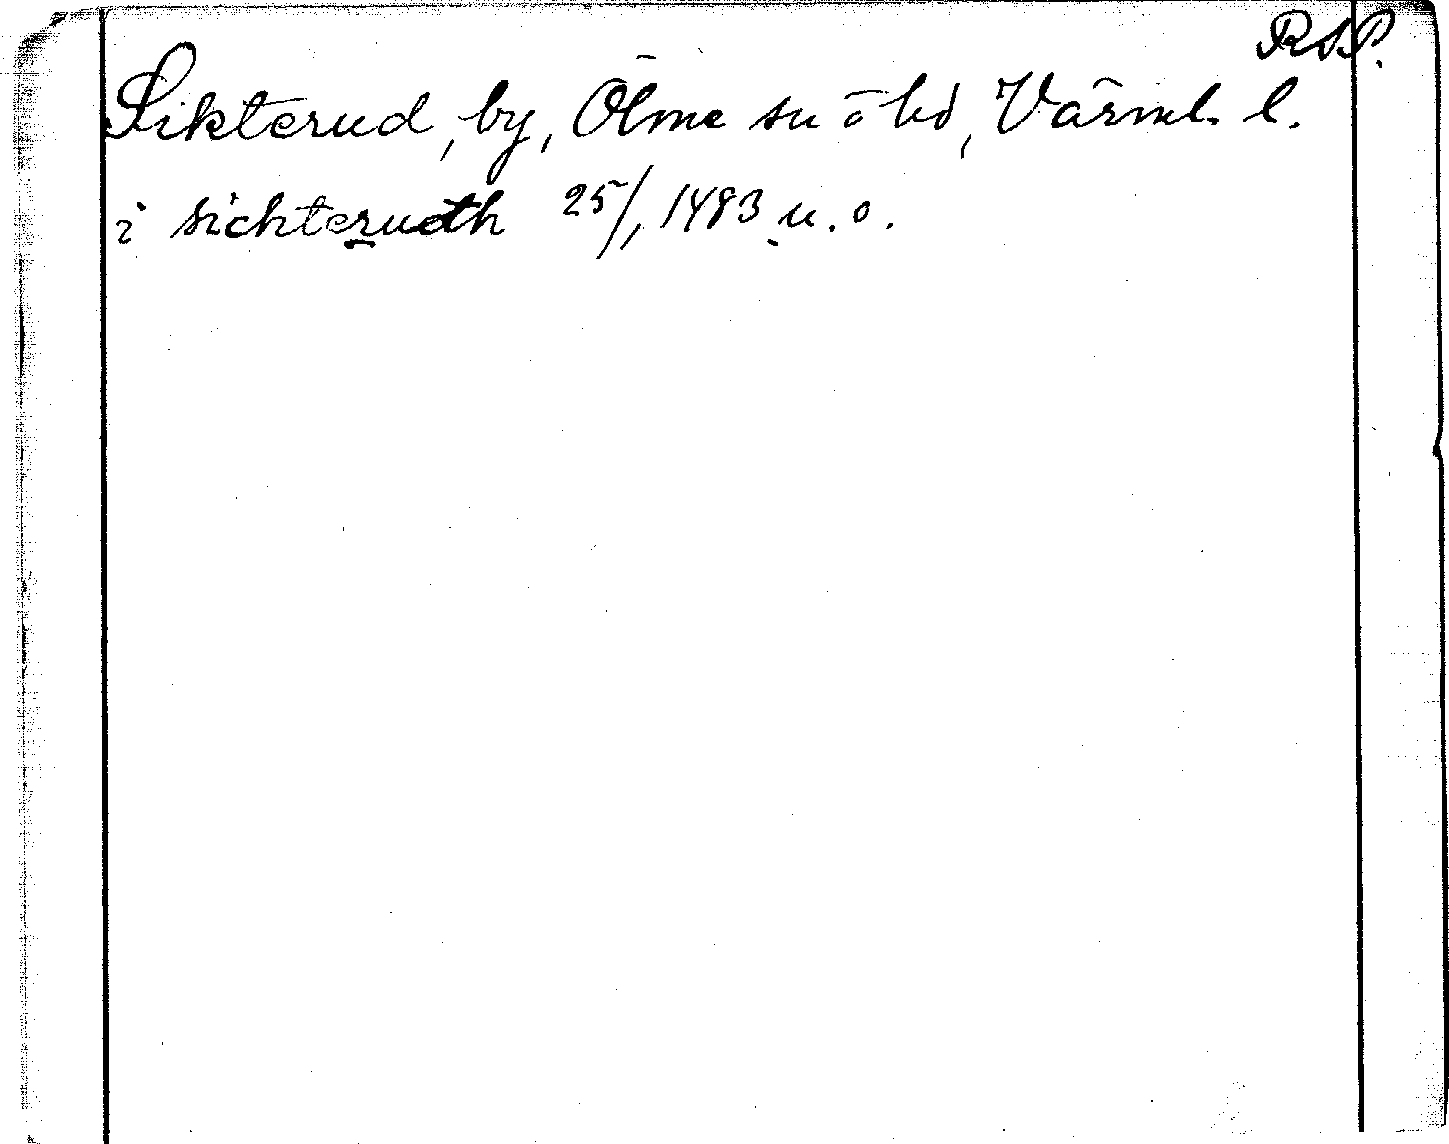 RAP.
Sikterud, by, Ölme sn o hd, Värml. l.
i sichterudh 25/1 1483 u. o.